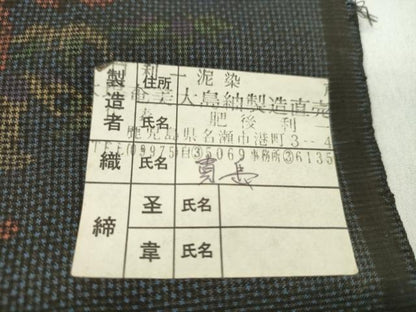 利一泥染
製造者 住所 奄美大島紬製造直売
氏名 肥後利
鹿児島県名瀬市港町3-4
TEL(09975)自③5069事務所②6135
織 氏名
締 圣 氏名
韋 氏名